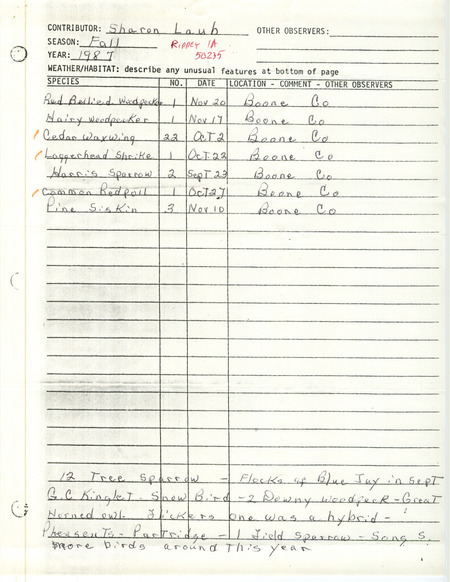 CONTRIBUTOR: Sharon Lauh OTHER OBSERVERS:
SEASON: Fall Rippey IA
YEAR: 1987 50235
WEATHER/HABITAT: describe any unusual features at bottom of page
SPECIES NO. DATE LOCATION - COMMENT - OTHER OBSERVERS
Red Bellied Woodpecker 1 Nov 20 Boone Co
Hairy Woodpecker 1 Nov 17 Boone Co
Cedar Waxwing 22 Oct 2 Boone Co
Loggerhead Shrike 1 OcT 22 Boone Co
Harris Sparrow 2 SepT 23 Boone Co
Common Redpoll 1 OcT 27 Boone Co
Pine SisKin 3 Nov 10 Boone Co
12 Tree Sparrow - Flocks of Blue Jay in SepT
G.C Kinglet - Snow Bird - 2 Downy Woodpeck - Great
Horned owl. Flickers one was a hybrid -
PheasenTs - Partridge - 1 Field Sparrow - Song S.
more birds around This year